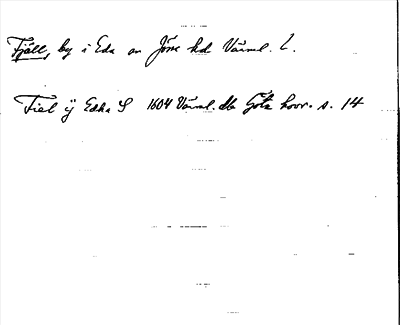 Fjäll, by i Eda sn Jösse hd Värml. L.
Fiel ÿ Edha S 1604 Värml. db Göta hovr. s. 14